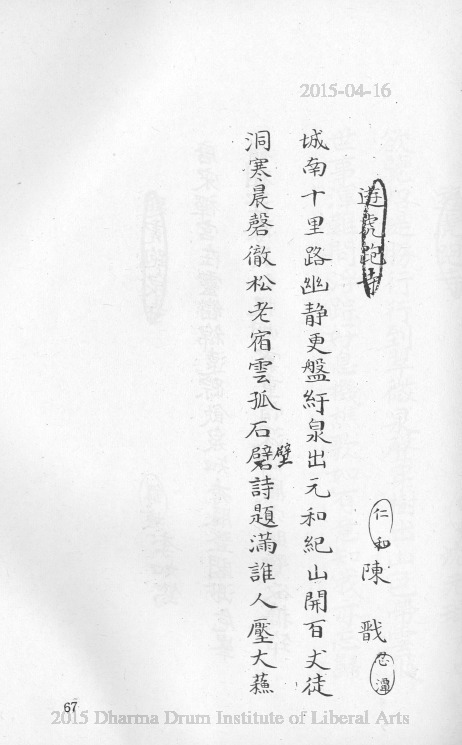 2015-04-16
遊虎跑寺
仁和陳戩忍潭
城南十里路幽静更盤紆泉出元和紀山開百丈徒
洞寒晨磬徹松老宿雲孤石詩題滿誰人壓大蘓
壁
67
2015 Dharma Drum Institute of Liberal Arts